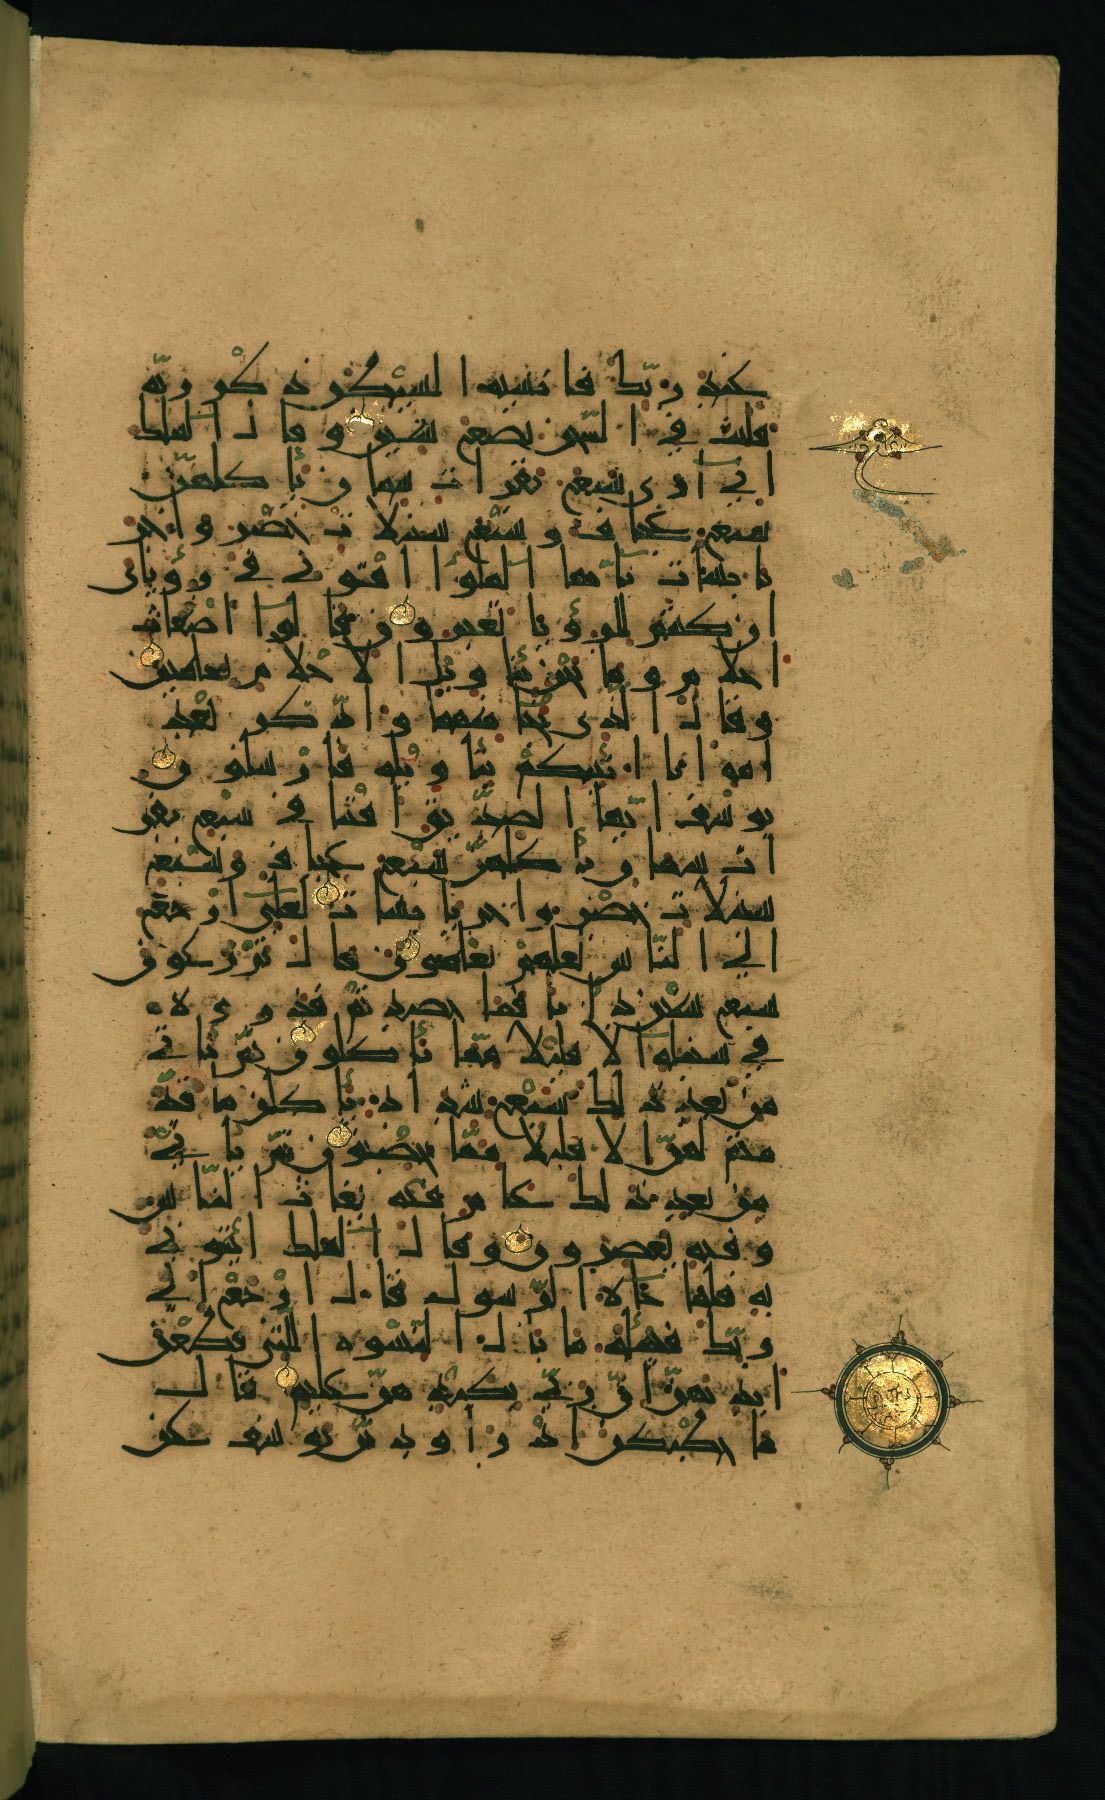 عند ربك فانسيه الشيطن ذكر ربه
فلبث في السجن بضع سنين وقال الملك
اني ارى سبع بقرات سمان ياكلهن
سبع عجاف وسبع سنبلات خضر واخر
يابسات يايها الملا افتوني في رءياى
ان كنتم للرءيا تعبرون قالوا اضغاث
احلام وما نحن بتاويل الاحلام بعالمين
وقال الذى نجا منهما وادكر بعد
امة انا انبئكم بتاويله فارسلون
يوسف ايها الصديق افتنا في سبع بقر
ات سمان ياكلهن سبع عجاف وسبع
سنبلات خضر واخر يابسات لعلي ارجع
الى الناس لعلهم يعلمون قال تزرعون
سبع سنين دابا فما حصدتم فذروه
في سنبله الا قليلا مما تاكلون ثم ياتي
من بعد ذلك سبع شداد ياكلن ما قد
متم لهن الا قليلا مما تحصنون ثم ياتي
من بعد ذلك عام فيه يغاث الناس
وفيه يعصرون وقال الملك ائتوني
به فلما جاه الرسول قال ارجع الى
ربك فسله ما بال النسوه التي قطعن
ايديهن ان ربي بكيدهن عليم قال
ما خطبكن اذ راودتن يوسف عن